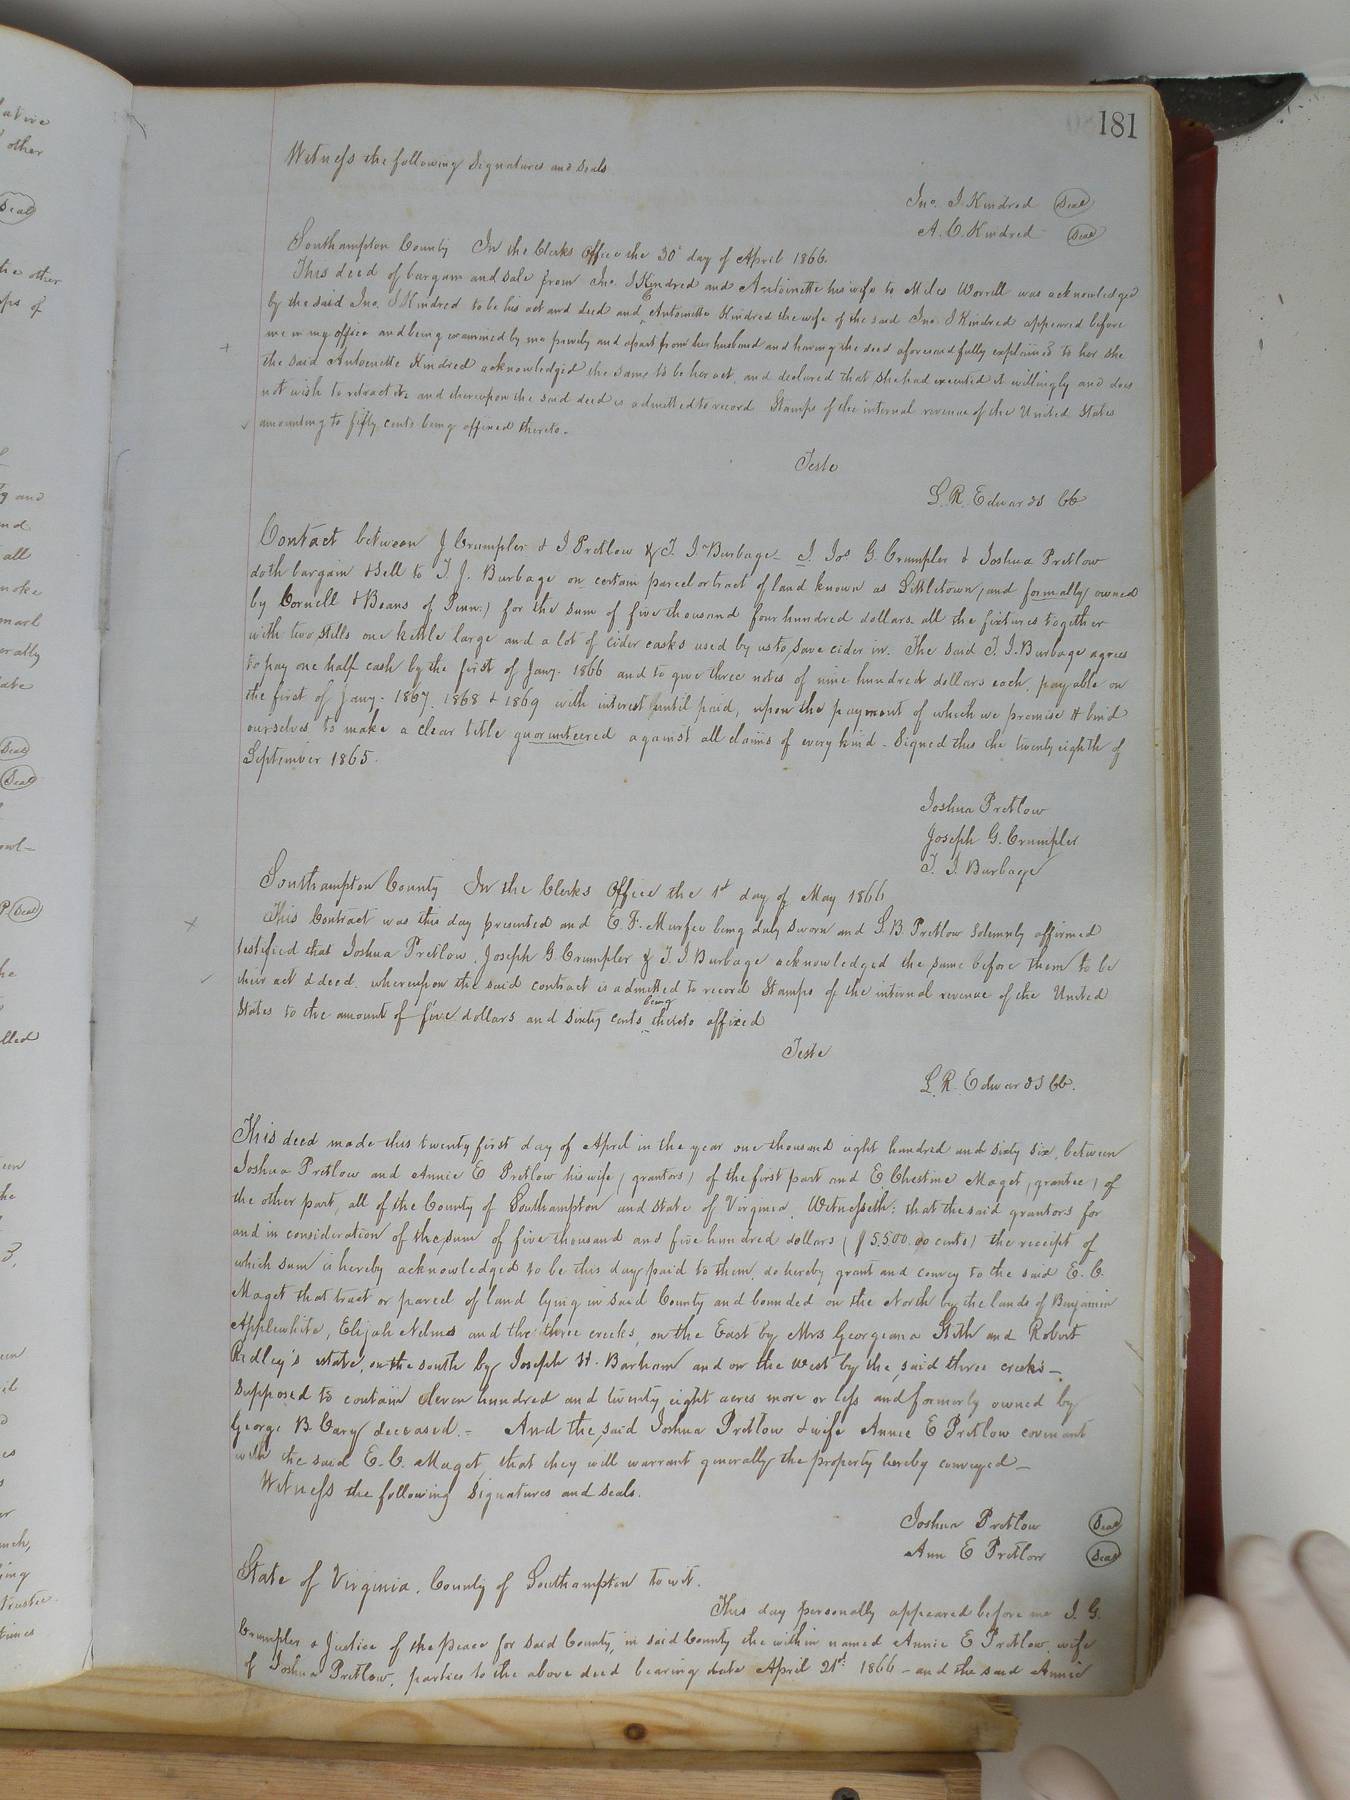 181
Witness the following Signatures and seals
Jno. J. Kindred Seal
A. C. Kindred Seal
Southampton County In the Clerks Office the 30 day of April 1866.
This deed of bargain and sale from Jno. J Kindred and Antoinette his wife to Miles Worrell was acknowledged
by the said Jno. J Kindred to be his act and deed and Antoinette Kindred the wife of the said Jno. J Kindred appeared before
me in my office and being examined by me privily and apart from her husband and having the deed aforesaid fully explained to her she
the said Antoinette Kindred acknowledged the same to be her act, and declared that she had executed it willingly and does
not wish to retract it and thereupon the said deed is admitted to record Stamps of the internal revenue of the United States
amounting to fifty cents being affixed thereto.
Teste
L. R. Edwards CC.
Contact between J Crumpler & J Pretlow & T. J. Burbage - I. Jos G. Crumpler & Joshua Pretlow
doth bargain & sell to T. J. Burbage on certain parcel or tract of land known as Littletown, (and formally owned
by Cornell & Beans of Penn.) for the sum of five thousand four hundred dollars all the fixtures together
with two stills one kettle large and a lot of cider casks used by us to save cider in. The said T. J. Burbage agrees
to pay one half cash by the first of Jany. 1866 and to give three notes of nine hundred dollars each, payable on
the first of Jany. 1867, 1868 & 1869 with interest until paid, upon the payment of which we promise & bind
ourselves to make a clear title guarunteered against all claims of every kind - Signed this the twenty eighth of
September 1865.
Joshua Pretlow
Joseph G. Crumpler
T. J. Burbage
Southampton County In the Clerks Office the 1st day of May 1866
This Contract was this day presented and E. F. Murfee being duly sworn and S. B. Pretlow solemnly affirmed
testified that Joshua Pretlow, Joseph G. Crumpler & T. J Burbage acknowledged the same before them to be
their act & deed. whereupon the said contract is admitted to record Stamps of the internal revenue of the United
States to the amount of five dollars and sixty cents being thereto affixed
Teste
L. R. Edwards CC.
This deed made this twenty first day of April in the year one thousand eight hundred and sixty six, between
Joshua Pretlow and Annie E Pretlow his wife (grantors) of the first part and E. Chestine Maget, (grantee) of
the other part, all of the County of Southampton and State of Virginia. Witnesseth: that the said grantors for
and in consideration of the sum of five thousand and five hundred dollars ($5.500.00 cents) the receipt of
which sum is hereby acknowledged to be this day paid to them, do hereby grant and convey to the said E. C.
Maget that tract or parcel of land lying in said County and bounded on the North by the lands of Benjamin
Applewhite, Elijah Nelms and the three creeks, on the East by Mrs Georgeana Stith and Robert
Ridley's estate, on the south by Joseph H. Barham and on the West by the said three creeks -
Supposed to contain eleven hundred and twenty eight acres more or less and formerly owned by
George B Cary deceased. - And the said Joshua Pretlow & wife Annie E Pretlow covenant
with the said E. C. Maget, that they will warrant generally the property hereby conveyed -
Witness the following Signatures and seals.
Joshua Pretlow Seal
Ann E Pretlow Seal
State of Virginia, County of Southampton to wit.
This day personally appeared before me J. G.
Crumpler a Justice of the peace for said County, in said County the within named Annie E Pretlow, wife
of Joshua Pretlow, parties to the above deed bearing date April 21st 1866 - and the said Annie